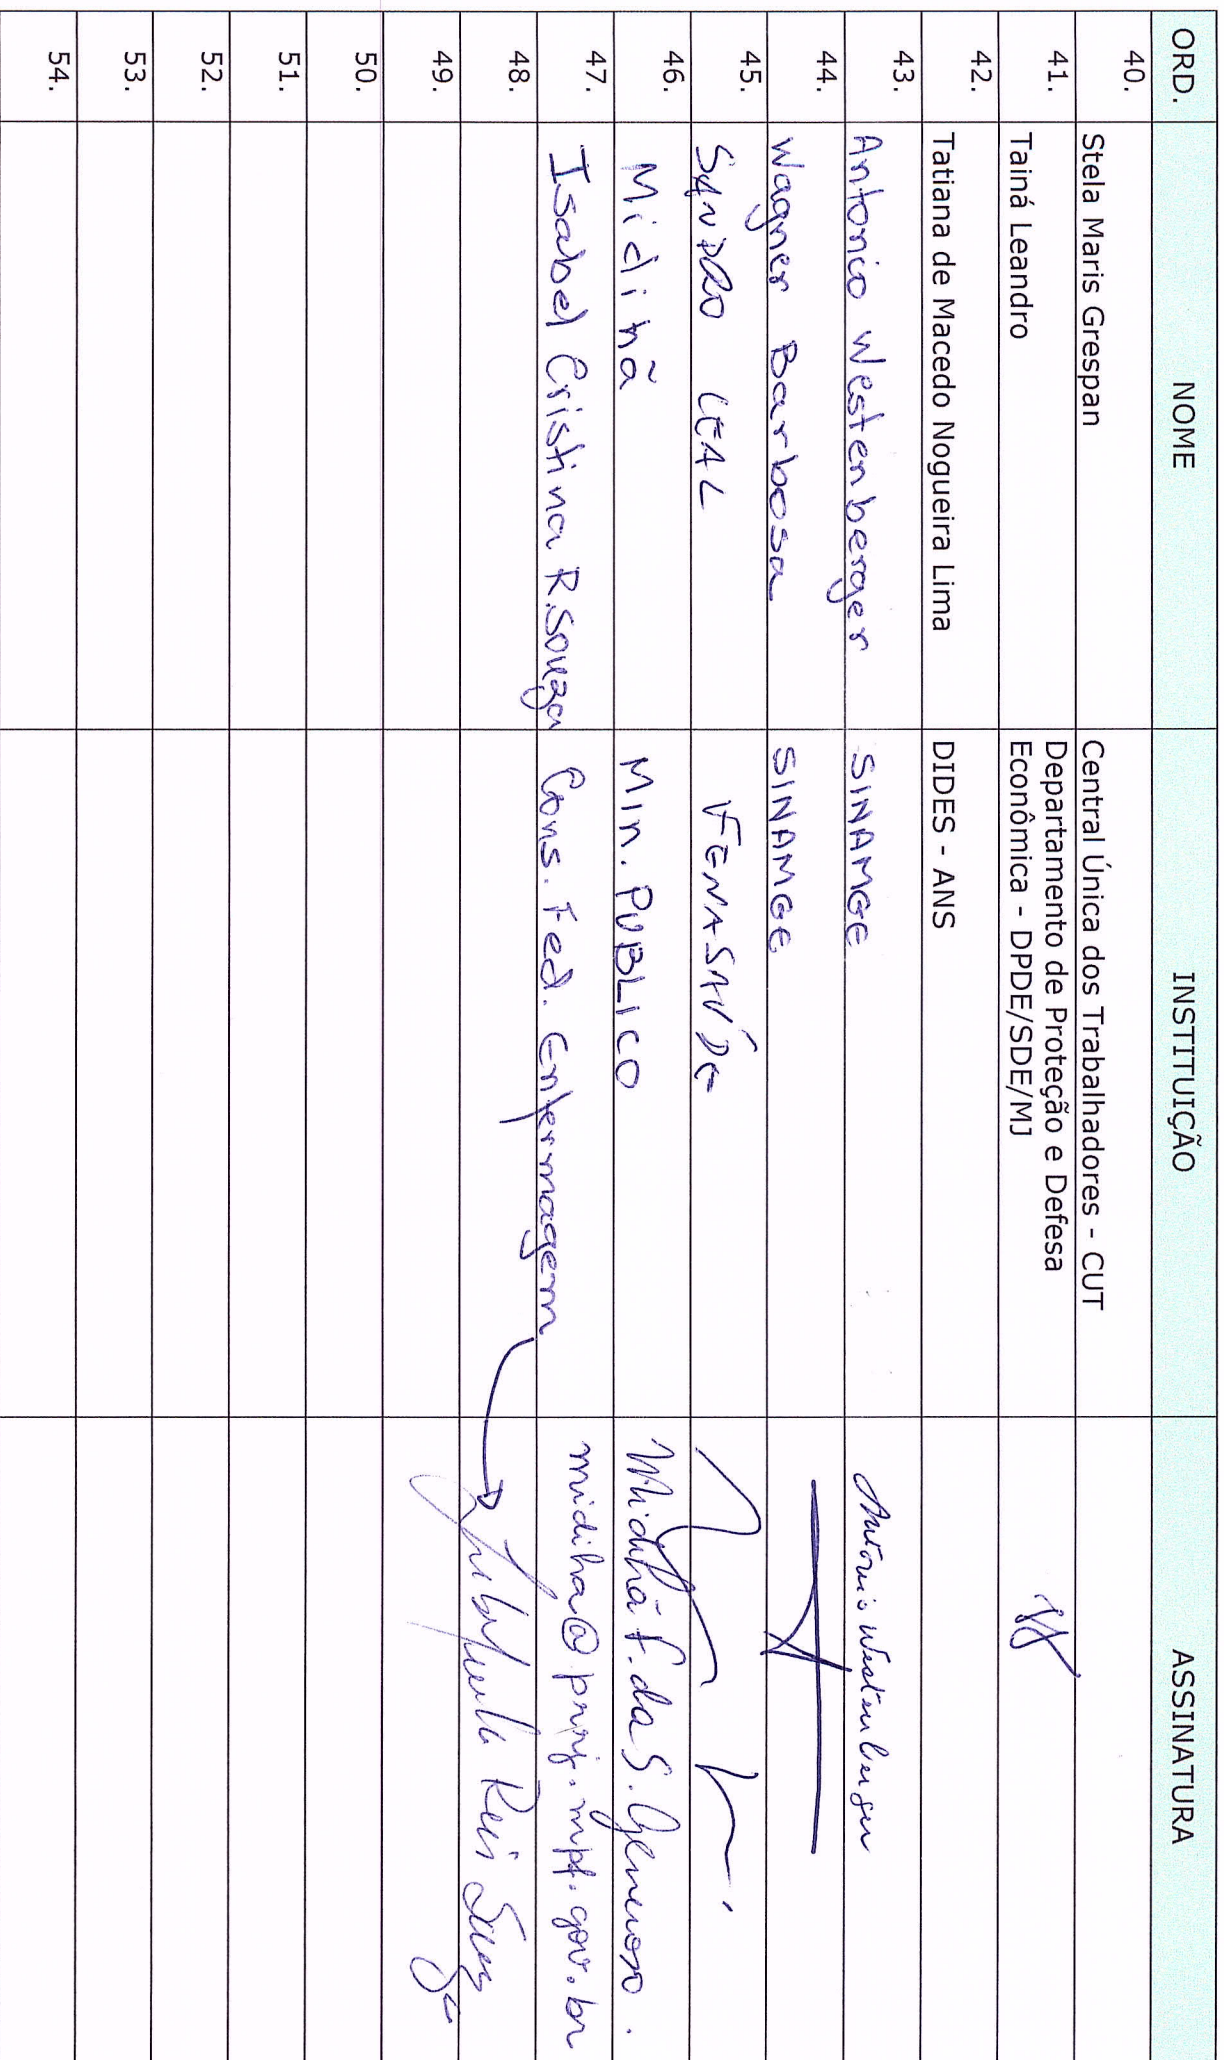 ORD. NOME INSTITUIÇÃO ASSINATURA
40. Stela Maris Grespan Central Única dos Trabalhadores - CUT
41. Tainá Leandro Departamento de Proteção e Defesa
Econômica - DPDE/SDE/MJ
42. Tatiana de Macedo Nogueira Lima DIDES - ANS
43. Antonio Westenberger SINAMGE Antonio Westenberger
44. Wagner Barbosa SINAMGE
45. SANDRO LEAL FENASAÚDE
46. Midihã Min. PUBLICO Midihã F. da S. Generoso.
47. Isabel Cristina R.Souza Cons. Fed. Enfermagem midiha@prrj.mpf.gov.br
48. Reis Souza
49.
50.
51.
52.
53.
54.